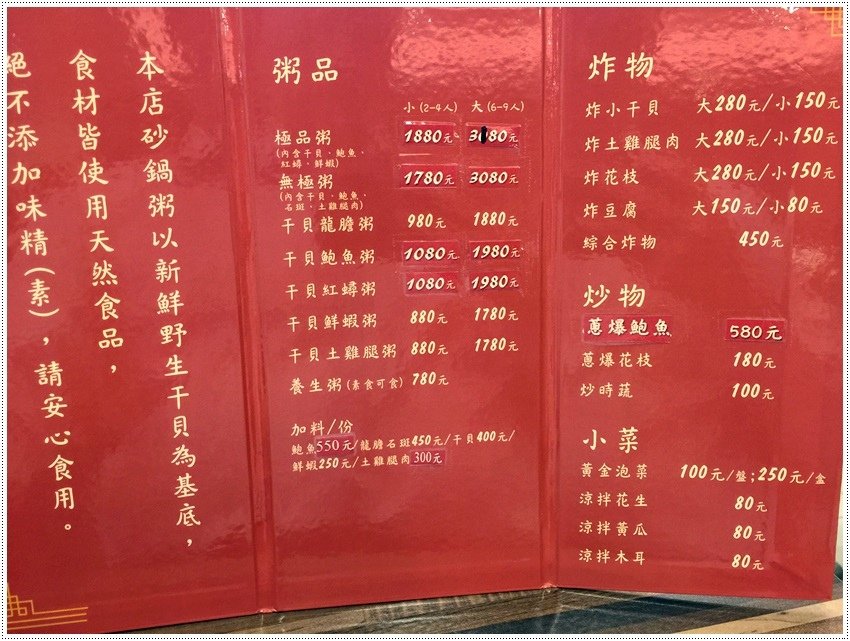 本店砂鍋粥以新鮮野生干貝為基底，
食材皆使用天然食品，
絕不添加味精(素)，請安心食用。
粥品
小(2-4人) 大(6-9人)
極品粥 1880元 3080元
(內含干貝、鮑魚、
紅蟳、鮮蝦)
無極粥 1780元 3080元
(內含干貝、鮑魚、
石斑、土雞腿肉)
干貝龍膽粥 980元 1880元
干貝鮑魚粥 1080元 1980元
干貝紅蟳粥 1080元 1980元
干貝鮮蝦粥 880元 1780元
干貝土雞腿粥 880元 1780元
養生粥(素食可食) 780元
加料/份
鮑魚550元/龍膽石斑450元/干貝400元/
鮮蝦250元/土雞腿肉300元
炸物
炸小干貝 大280元/小150元
炸土雞腿肉 大280元/小150元
炸花枝 大280元/小150元
炸豆腐 大150元/小80元
綜合炸物 450元
炒物
蔥爆鮑魚 580元
蔥爆花枝 180元
炒時蔬 100元
小菜
黃金泡菜 100元/盤;250元/盒
涼拌花生 80元
涼拌黃瓜 80元
涼拌木耳 80元